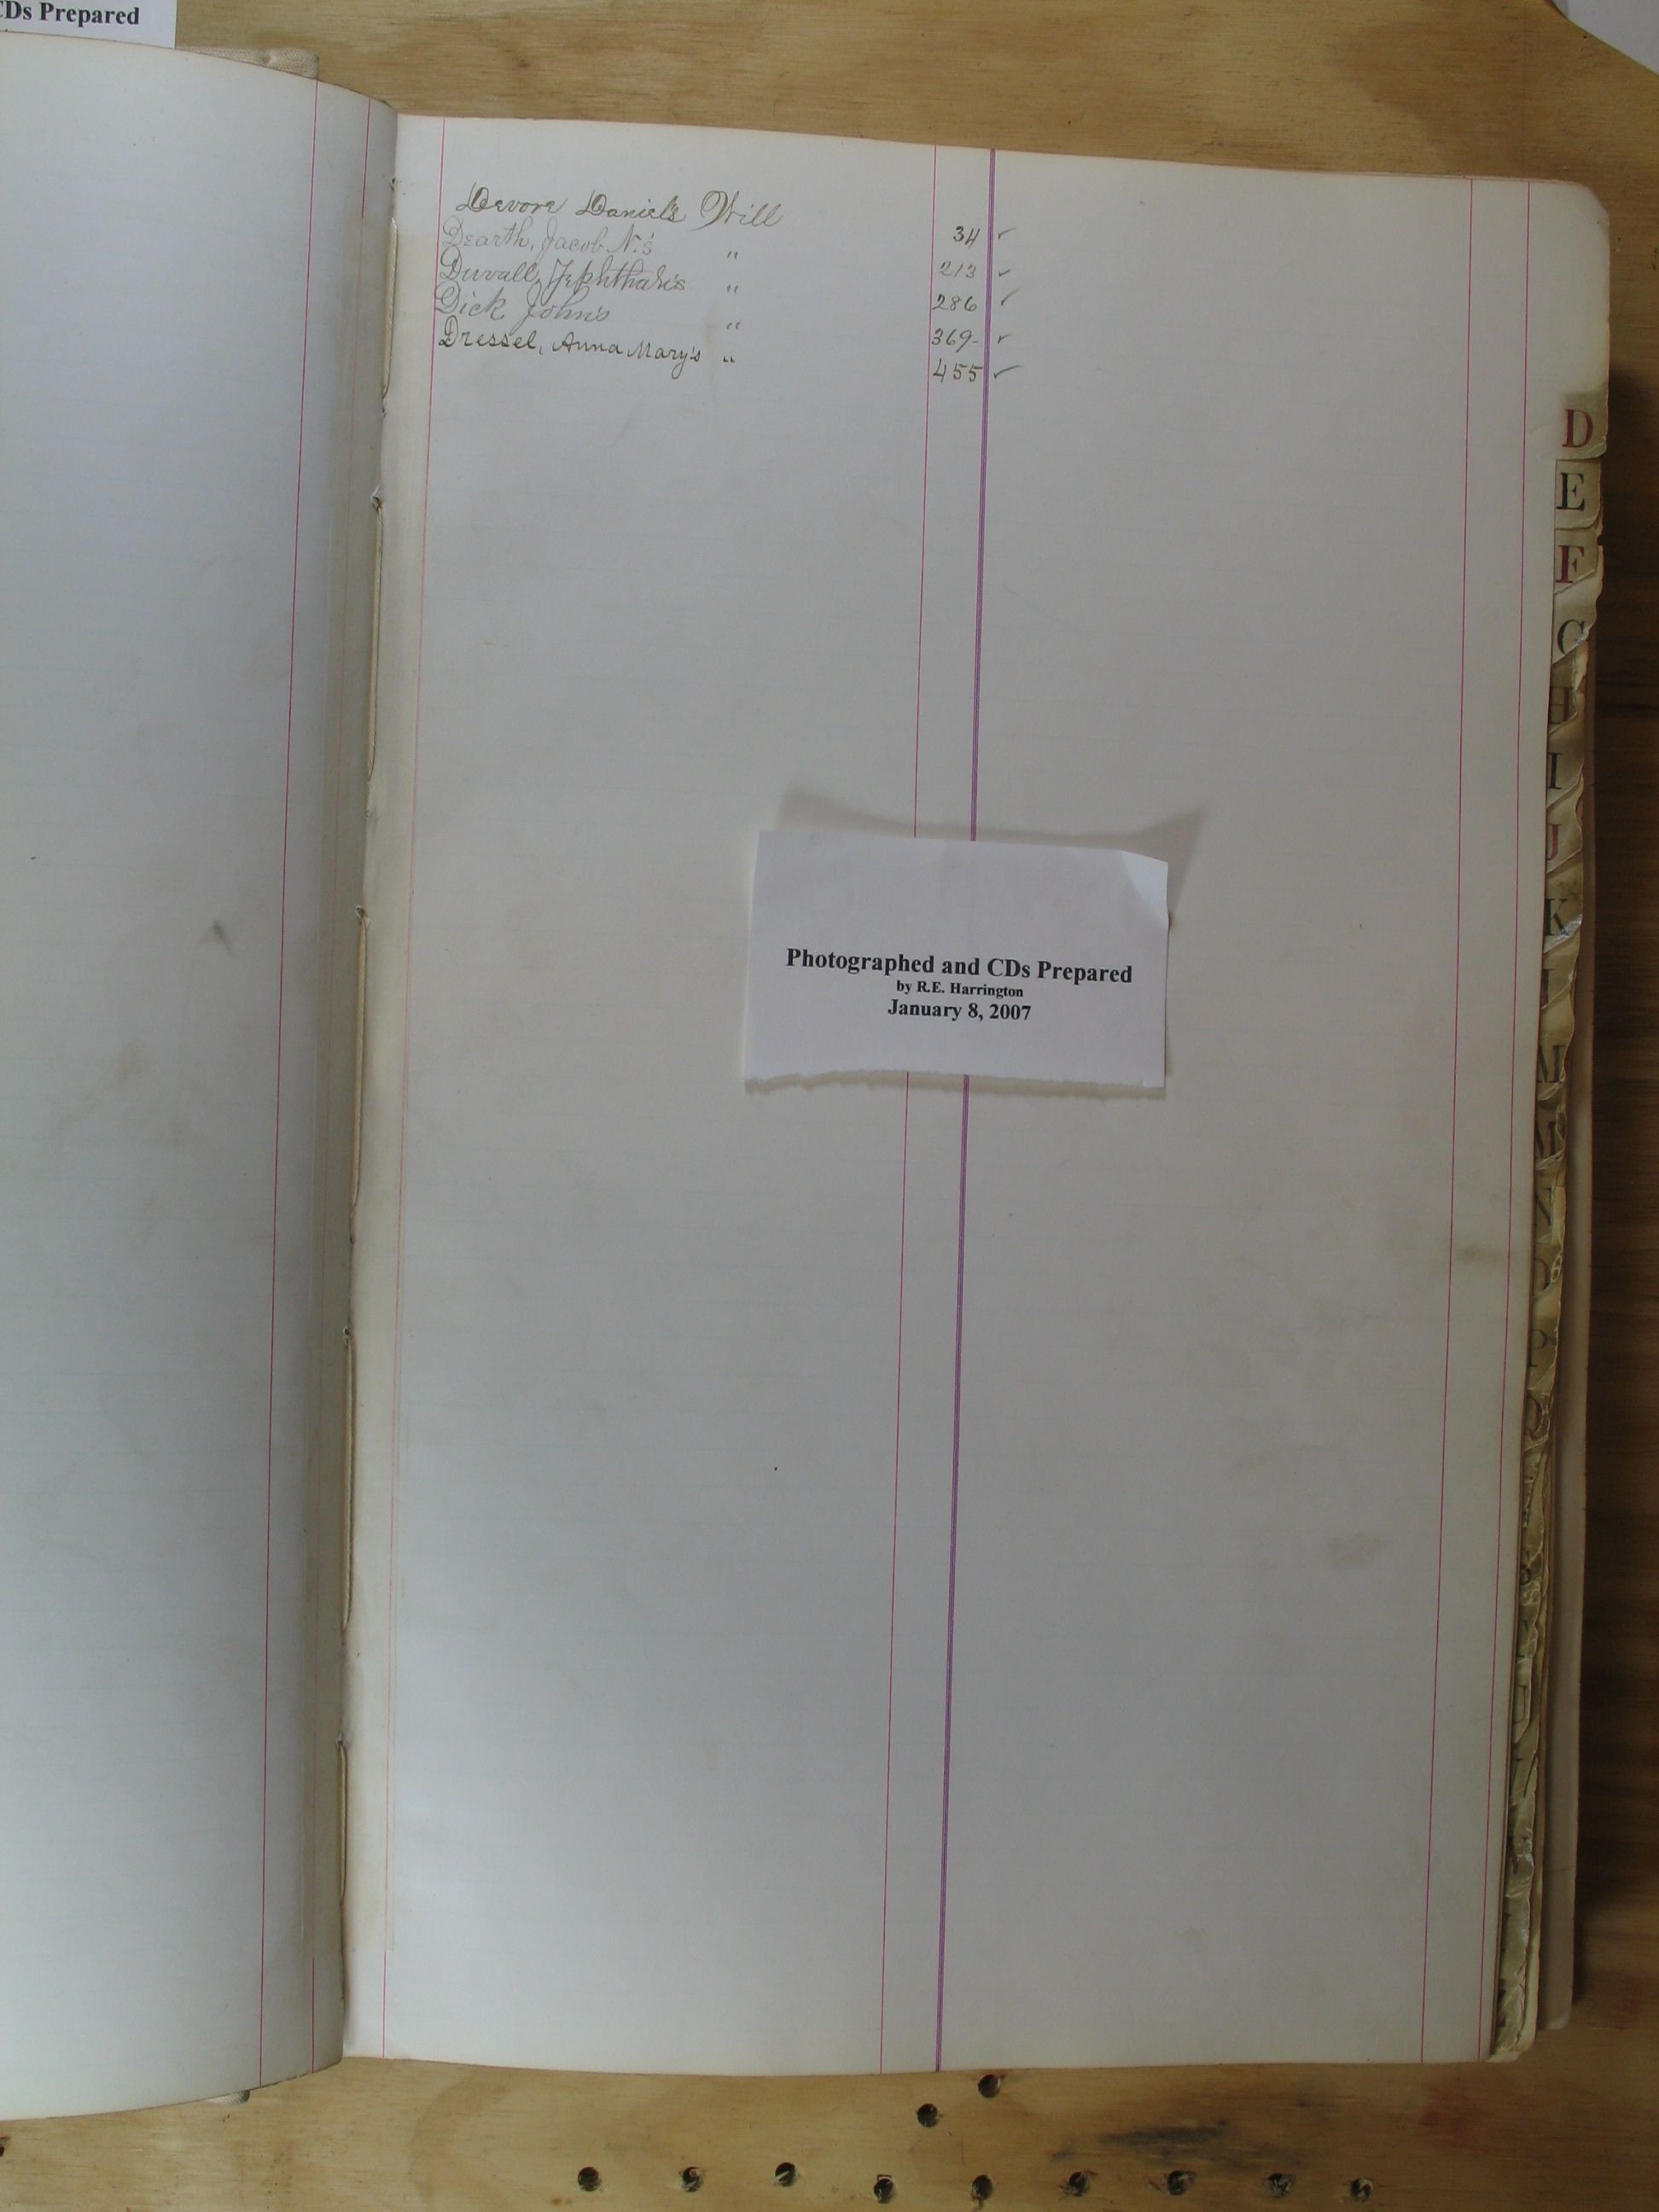 CDs Prepared
Devore Daniel's Will 34 ✓
Dearth, Jacob N.'s " 213 ✓
Duvall, Jephthah's " 286 ✓
Dick John's " 369- ✓
Dressel, Anna Mary's " 455 ✓
D
E
F
G
H
I
J
K
L
M
Photographed and CDs Prepared
by R.E. Harrington
January 8, 2007
N
O
P
Q